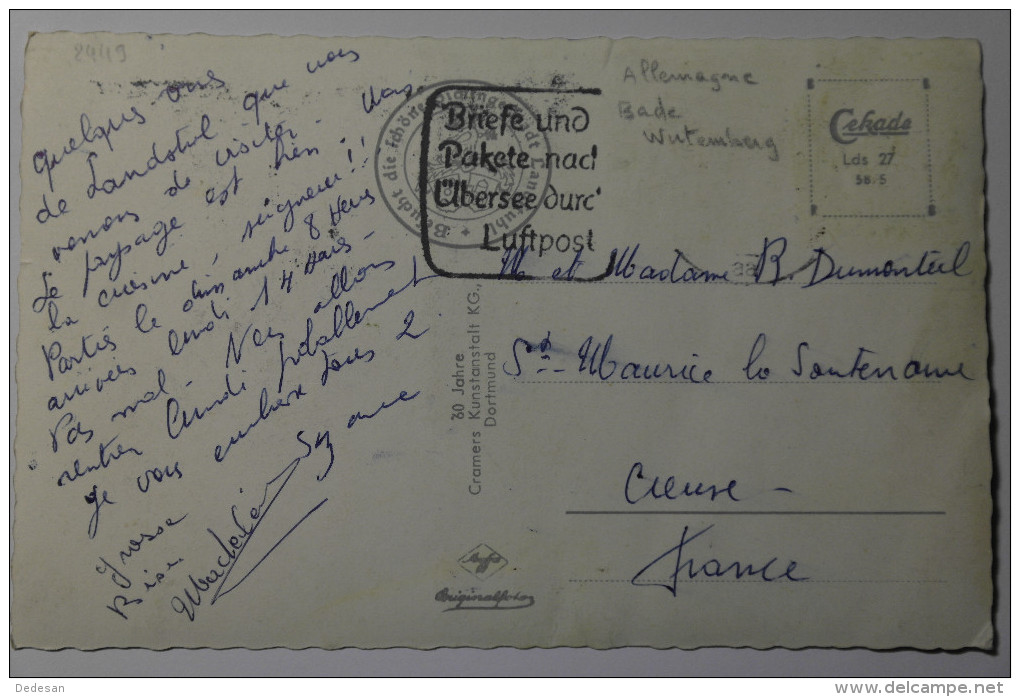 2449
Quelques vues
de Landstuhl que nous
venons de visiter - 
Le paysage est bien
la cuisine, seigneur!!
Partis le dimanche 8 heures
arrivées lundi 14 heures -
Pas mal - Nous allons
rentrer lundi probablement
Je vous embrasse tous 2
Suzanne
Grosse
Bise
Madeleine
Besucht die schöne Sickingenstadt Landstuhl
Briefe und
Pakete nach
Übersee durc
Luftpost
Allemagne
Bade
Wutemberg
Cekade
Lds 27
58.5
M et Madame B. Dumonteil
St Maurice la Souterraine
Creuse -
France
60 Jahre
Cramers Kunstanstalt KG.,
Dortmund
Agfa
Originalfoto
Dedesan
www.delcampe.net